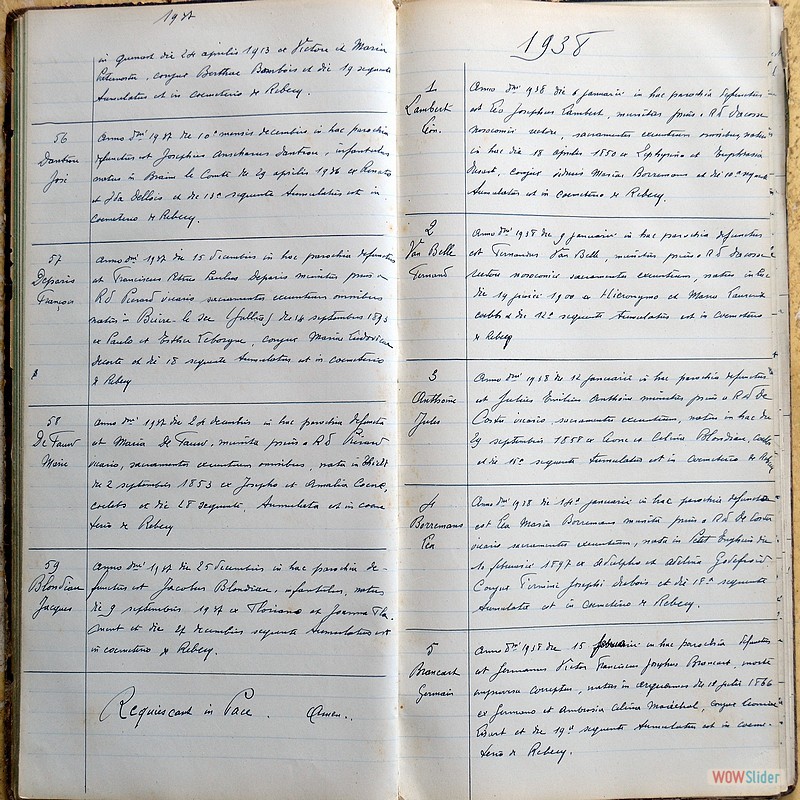 1937
in quinast die 24 aprilis 1913 ex Victore et Maria
conjux Berthae et die 19 sequente
tumulatus est in coemeterio de Rebecq.
56
José
Anno dni 1937 die 10ª mensis decembris in hac parochia
defunctus est Josephus infantulus
natus in Braine le Comte die 29 aprilis 1936 ex
et Ida et die 13ª sequente tumulatus est in
coemeterio de Rebecq.
57
Deparis
François
Anno dni 1937 die 15 decembris in hac parochia defunctus
est Franciscus Paulus Deparis munitus prius a
Rd Pierard vicario sacramentis exeuntium omnibus
natus in (Gallia) die 14 septembris 1893
ex Paulo et Esther conjux Maria
et die 18 sequente tumulatus est in coemeterio
de Rebecq
58
De Fauw
Marie
Anno dni 1937 die 24 decembris in hac parochia defuncta
est Maria De Fauw, munita prius a Rd Pierard
vicario, sacramentis exeuntium omnibus, nata in
die 2 septembris 1853 ex Josepho et Amalia
coelebs et die 28 sequente, tumulata est in coeme
terio de Rebecq
59
Blondiau
Jacques
Anno dni 1937 die 25 decembris in hac parochia de-
functus est Jacobus Blondiau, infantulus, natus
die 9 septembris 1937 ex Floriano et Joanna
et die 27 decembris sequente tumulatus est
in coemeterio de Rebecq.
Requiescant in Pace. Amen.
1938
1
Lambert
Léon.
Anno dni 1938 die 6 januarii in hac parochia defunctus
est Leo Josephus Lambert, munitus prius a Rd
rectore, sacramentis exeuntium omnibus, natus
in hac die 18 aprilis 1850 ex Zephyrino et Euphrasia
conjux viduus Maria Borremans et die 10ª sequente
tumulatus est in coemeterio de Rebecq.
2
Van Belle
Fernand
Anno dni 1938 die 9 januarii in hac parochia defunctus
est Fernandus Van Belle, munitus prius a Rd
rectore sacramentis exeuntium, natus in
die 19 junii 1900 ex Hieronymo et Maria
et die 12ª sequente tumulatus est in coemeterio
de Rebecq
3
Anthoine
Jules
Anno dni 1938 die 12 januarii in hac parochia defunctus
est Julius Emilius Anthoine munitus prius a Rd De
Coster vicario, sacramentis exeuntium, natus in hac die
29 septembris 1858 ex Leone et Celina Blondiau, coelebs
et die 15ª sequente tumulatus est in coemeterio de Rebecq
4
Borremans
Léa
Anno dni 1938 die 14ª januarii in hac parochia defuncta
est Lea Maria Borremans munita prius a Rd De Coster
vicario sacramentis exeuntium, nata in Petit Enghien die
10 februarii 1897 ex Adolpho et Adelina Godefroid
Conjux Firmini Josephi Dubois et die 18ª sequente
tumulata est in coemeterio de Rebecq.
5
Brancart
Germain
Anno dni 1938 die 15 januarii in hac parochia defunctus
est Germanus Victor Franciscus Josephus Brancart, morte
improvisa correptus, natus in die 12 julii 1866
ex Germano et Ambrosia Celina Maréchal, conjux
et die 19ª sequente tumulatus est in coeme-
terio de Rebecq.
WOWSlider